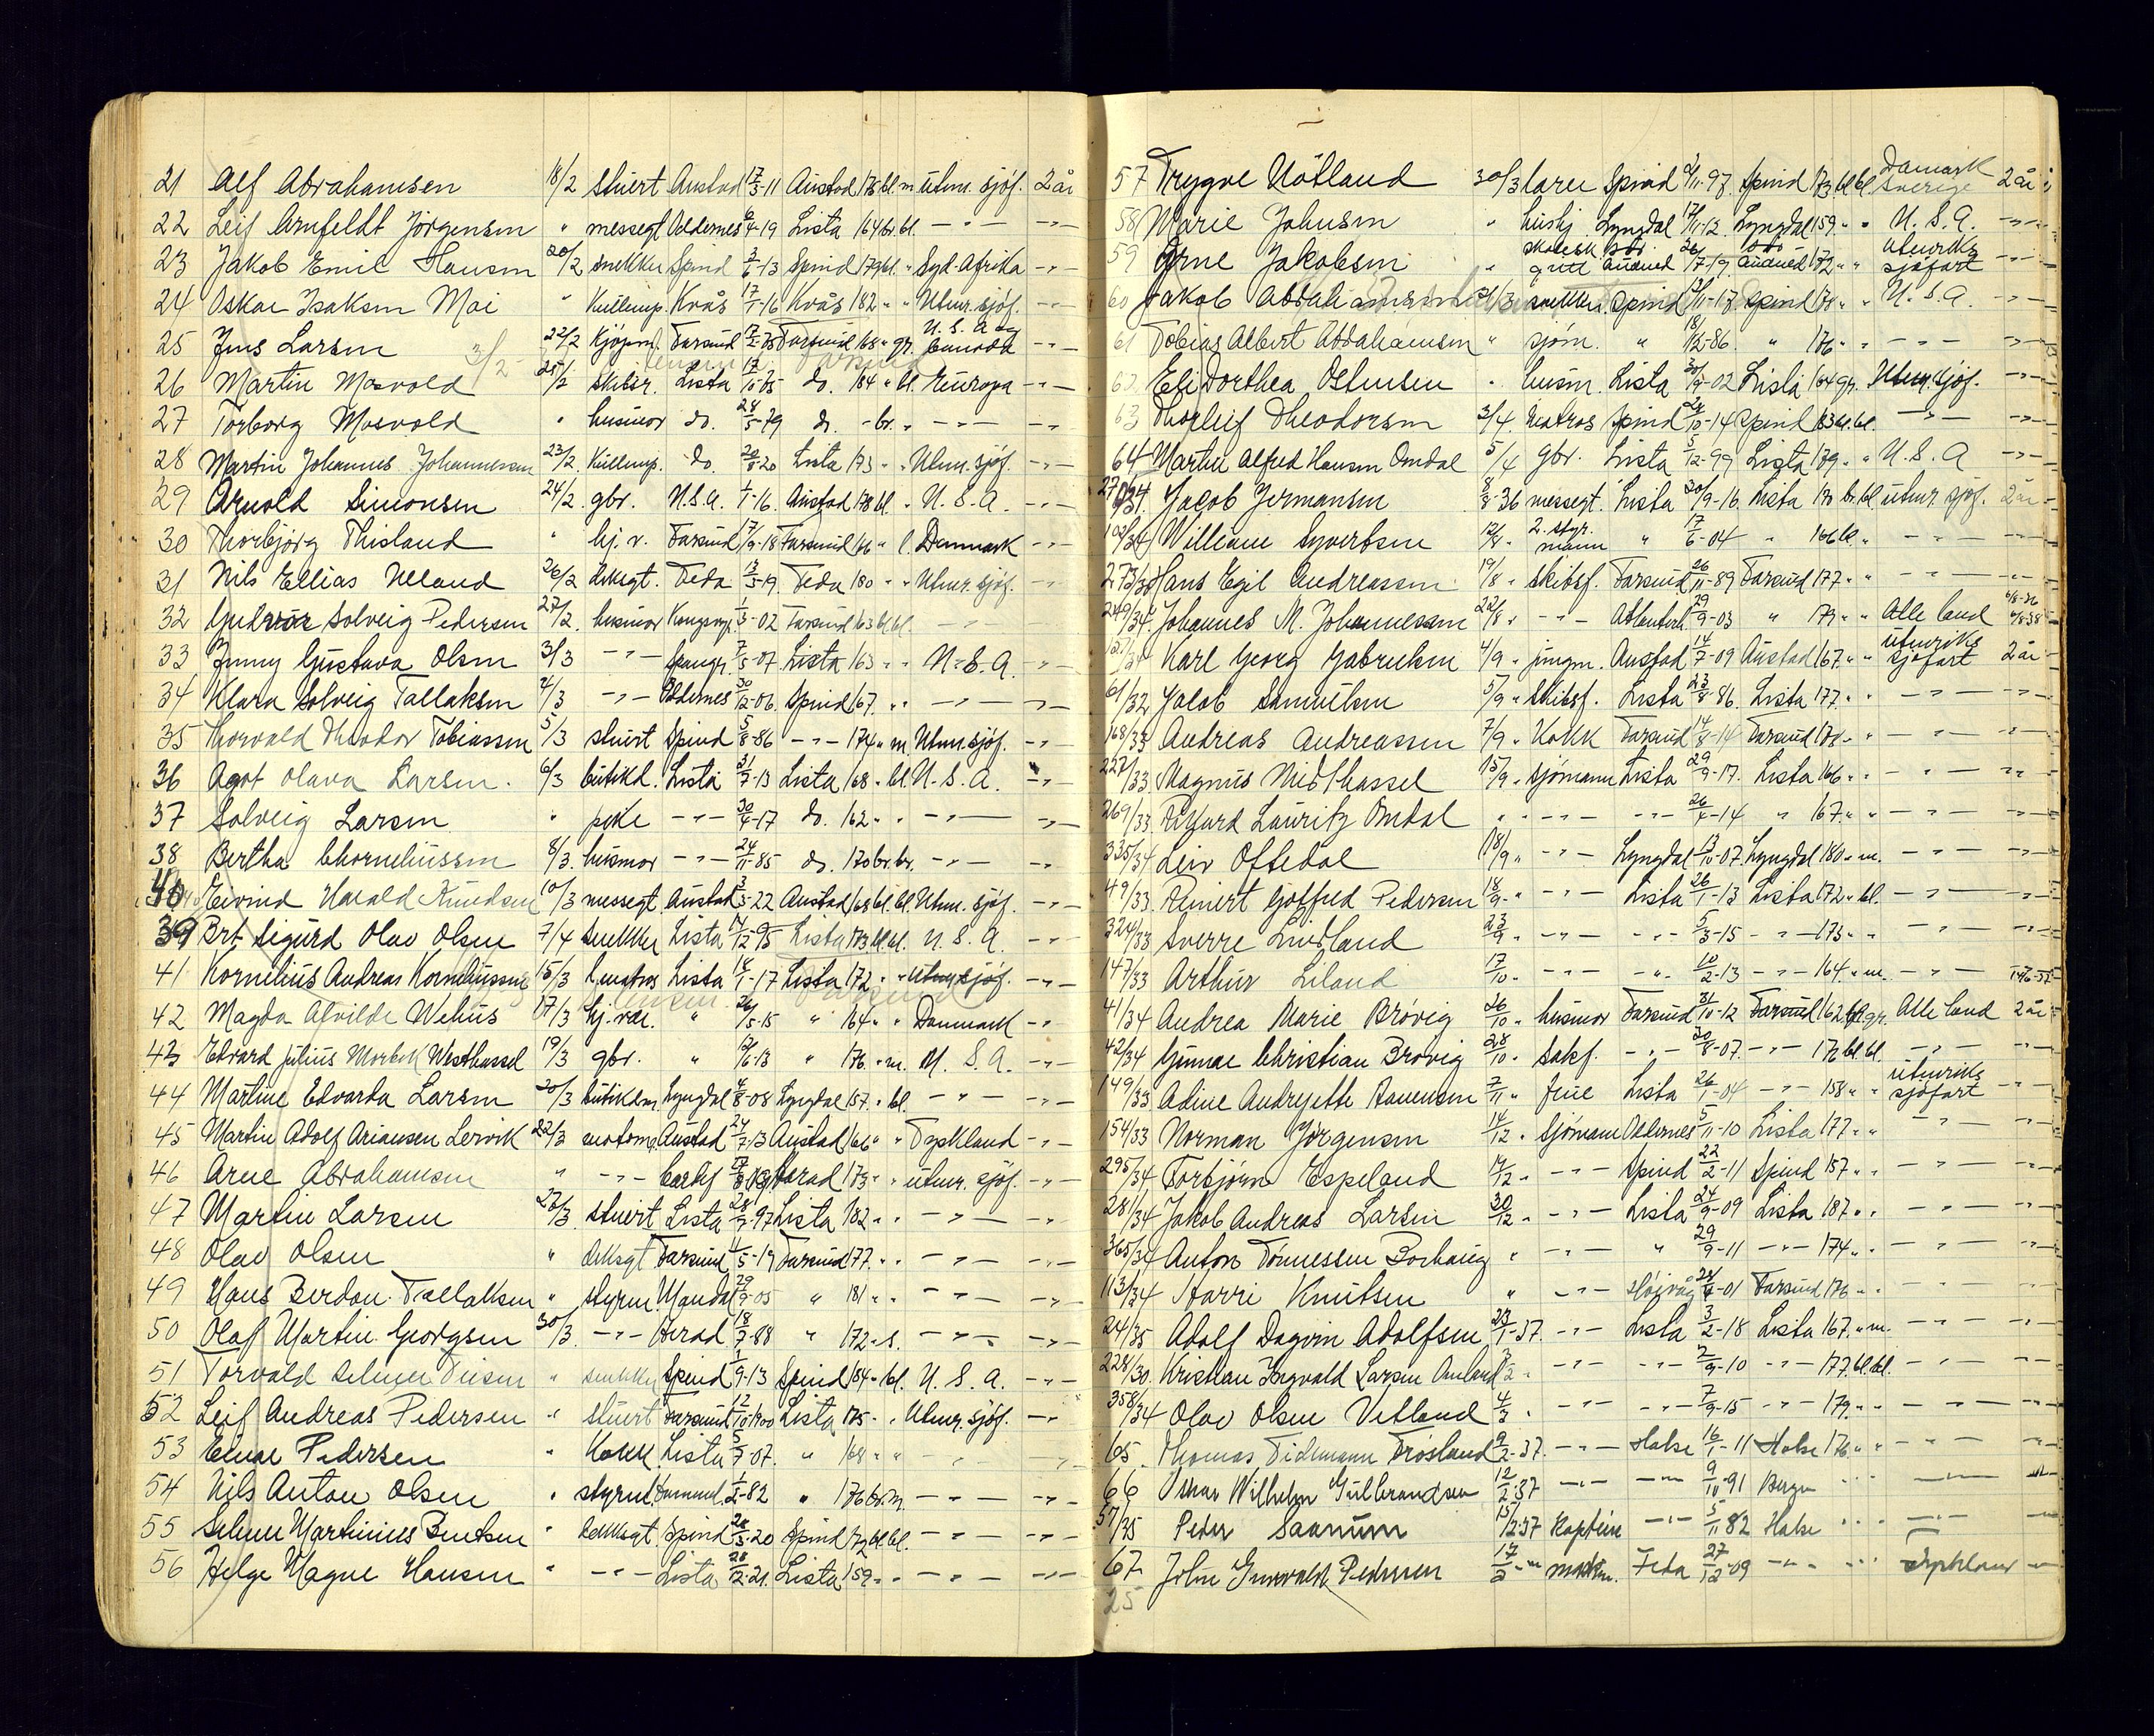 21 Alf Abrahamsen 18/2 stuert Austad 17/3-11 Austad 178 bl. m. utenr. sjöf. 2 år
22 Leif Arnfeldt Jörgensen " messegt. Oddernes 6/4-19 Lista 164 br. bl. -"- -"-
23 Jakob Emil Hansen 20/2 snekker Spind 2/6-13 Spind 179 bl. " Syd-Afrika -"-
24 Oskar Isaksen Moi " Kullemp. Kvås 17/1-16 Kvås 182 " " Utenr. sjöf. -"-
25 Jens Larsen 22/2 Kjöpm. Farsund 17/2-75 Farsund 168 " gr. U. S. A. og Canada -"-
26 Martin Mosvold 25/2 skibsr. Lista 17/11-75 do. 184 " bl. Europa -"-
27 Torborg Mosvold " husmor do. 28/5-79 do. - br. " -"- -"-
28 Martin Johannes Johannessen 23/2 Kullemp. do. 20/8-20 Lista 173 " " Utenr. sjöf. -"-
29 Arnold Simonsen 24/2 gbr. U.S.A. 1/1-16 Austad 178 bl. " U. S. A. -"-
30 Thorbjörg Thisland " hj. v. Farsund 17/9-18 Farsund 166 " " Danmark -"-
31 Nils Ellias Ueland 26/2 deksgt. Feda 13/5-19 Feda 180 " " Utenr. sjöf. -"-
32 Gudrun Solveig Pedersen 27/2 husmor 1/3-02 Farsund 163 bl. bl. -"-
33 Jenny Gustava Olsen 3/3 -"- 7/5-07 Lista 163 " " U. S. A. -"-
34 Klara Solveig Tallaksen 4/3 -"- Oddernes 30/12-06 Spind 167 " " -"- -"-
35 Thorvald Theodor Tobiassen 5/3 stuert Spind 5/8-86 -"- 174 " m. Utenr. sjöf. -"-
36 Agot Olava Larsen 6/3 butikd. Lista 31/7-13 Lista 168 " bl. U. S. A. -"-
37 Solveig Larsen " pike -"- 30/4-17 do. 162 " " -"- -"-
38 Bertha Chorneliussen 8/3 husmor -"- 24/11-85 do. 170 br. br. -"- -"-
40 Eivind Harald Knudsen 10/3 messegt. Austad 3/3-22 Austad 168 bl. bl. Utenr. sjöf. -"-
39 Brt Sigurd Olav Olsen 7/4 snekker Lista 14/12-95 Lista 173 bl. bl. U. S. A. -"-
41 Kornelius Andreas Korneliussen 15/3 Lista 18/1-17 Lista 172 " " Utenr. sjöf. -"-
42 Magda Alvilde Wehus 17/3 hj. vær. " 26/5-15 " 164 " " Danmark -"-
43 Edvard Julius Westhassel 19/3 gbr. " 2/6-13 " 176 " m. U. S. A. -"-
44 Martine Edvarda Larsen 20/3 Lyngdal 4/8-08 Lyngdal 157 " bl. -"- -"-
45 Martin Adolf Ariansen Lervik 22/3 Austad 24/7-13 Austad 166 " " Tyskland -"-
46 Arne Abrahamsen " -"- Herad 173 " " utenr. sjöf. -"-
47 Martin Larsen 22/3 stuert Lista 28/7-97 Lista 182 " " -"- -"-
48 Olav Olsen " dekksgt Farsund 4/5-19 Farsund 177 " " -"- -"-
49 Hans Berdon Tallaksen " styrm. Mandal 29/9-05 " 181 " " -"- -"-
50 Olaf Martin Georgsen 30/3 -"- Herad 18/7-88 " 172 " s. -"- -"-
51 Torvald " snekker Spind 1/9-13 Spind 184 " bl. U. S. A. -"-
52 Leif Andreas Pedersen " stuert Farsund 12/10-1900 Lista 175 " " Utenr. sjöf. -"-
53 Einar Pedersen " Kokk Lista 5/7-07 " 168 " " -"- -"-
54 Nils Anton Olsen " styrm. 1/2-82 " 176 br. m. -"- -"-
55 Martinius Bentsen " dekksgt Spind 28/3-20 Spind 172 bl. bl. -"- -"-
56 Helge Magne Hansen " -"- Lista 28/12-21 Lista 159 " " -"- -"-
57 Trygve Nötland 30/3 lærer Spind 2/11-97 Spind 173 bl. bl. Danmark Sverige 2 år
58 Marie Johnsen " hushj. Lyngdal 17/11-12 Lyngdal 159 " " U. S. A. -"-
59 Arne Jakobsen " Audned 26/7-19 Audned 172 " " utenriks sjöfart -"-
60 Jakob Abrahamsen 31/3 snekker Spind 2/11-17 Spind 178 " " U. S. A. -"-
61 Tobias Albert Abrahamsen " sjöm. " 18/12-86 " 176 " " -"- -"-
62 Eli Dorthea Ostensen " husm. Lista 30/9-02 Lista 164 gr. Utenr. sjöf. -"-
63 Thorleif Theodorsen 3/4 Matros Spind 24/10-14 Spind 183 bl. bl. -"- -"-
64 Martin Alfred Hansen Omdal 5/4 gbr. Lista 5/12-99 Lista 179 " " U. S. A -"-
270/34 Jacob Jermansen 8/8-36 messegt. Lista 30/9-16 Lista 178 br. bl. utenr. sjöf. 2 år
102/34 William Syvertsen 12/8 " 2. styrmann " 17/6-04 " 166 bl. " -"- -"-
273/33 Hans Egil Andreassen 19/8 " skibsf. Farsund 26/11-89 Farsund 177 " " -"- -"-
249/34 Johannes M. Johannessen 22/8 " -"- Atlanterh. 29/9-03 " 179 " " Alle land
Karl Georg Gabrielsen 4/9 " jungm. Austad 14/7-09 Austad 167 " " utenriks sjöfart 2 år
61/32 Jacob Samuelsen 5/9 " Skibsf. Lista 23/8-86 Lista 177 " " -"- -"-
168/33 Andreas Andreassen 7/9 " Kokk Farsund 14/8-14 Farsund 178 " " -"- -"-
227/33 Magnus Midthassel 15/9 " sjömann Lista 29/9-17 Lista 166 " " -"- -"-
269/33 Rikard Lauritz Omdal " -"- -"- 26/4-14 " 167 " " -"- -"-
335/34 Leiv Oftedal 18/9 " -"- Lyngdal 13/10-07 Lyngdal 180 " m. -"- -"-
49/33 Reinert Gotfred Pedersen 18/9 " -"- Lista 26/1-13 Lista 172 " bl. -"- -"-
324/33 Sverre Lindland 23/9 " -"- -"- 5/3-15 -"- 173 " " -"- -"-
147/33 Arthur Liland 17/10 " -"- -"- 10/2-13 -"- 164 " m. -"-
41/34 Andrea Marie Brövig 26/10 " husmor Farsund 31/10-12 Farsund 162 bl. gr. Alle land 2 år
42/34 Gunnar Christian Brövig 28/10 " Sakf. -"- 20/8-07 -"- 172 bl. bl. -"- -"-
149/33 Adine Andrejette 7/11 " frue Lista 26/1-04 -"- 158 " " utenriks sjöfart -"-
154/33 Norman Jörgensen 14/12 " Sjömann Oddernes 5/11-10 Lista 177 " " -"- -"-
295/34 Torbjörn Espeland 19/12 " -"- Spind 22/2-11 Spind 157 " " -"- -"-
281/34 Jakob Andreas Larsen 30/12 " -"- Lista 24/9-09 Lista 187 " " -"- -"-
365/34 Anton Tönnessen Borhaug " -"- " 29/9-11 -"- 174 " " -"- -"-
113/34 Harri Knutsen " -"- Höivåg 24/4-01 Farsund 176 " " -"- -"-
24/35 Adolf Dagvin Adolfsen 23/1-37 -"- Lista 3/2-18 Lista 167 " m. -"- -"-
228/30 Kristian Ingvald Larsen -"- -"- 2/9-10 -"- 177 bl. bl. -"- -"-
358/34 Olav Olsen Vetland 4/3 " -"- -"- 7/9-15 -"- 179 " " -"- -"-
65 Thomas Tidemann Trösland 9/2-37 -"- Halse 16/1-11 Halse 176 " " -"- -"-
66 Oskar Wilhelm Gulbrandsen 12/2-37 -"- -"- 9/10-91 Bergen " " " -"- -"-
57/35 Peder Saanum 15/2-37 Kaptein -"- 5/11 82 Halse " " " -"- -"-
67 John Pedersen 17/2 -"- Feda 27/12-09 -"- " " "
25